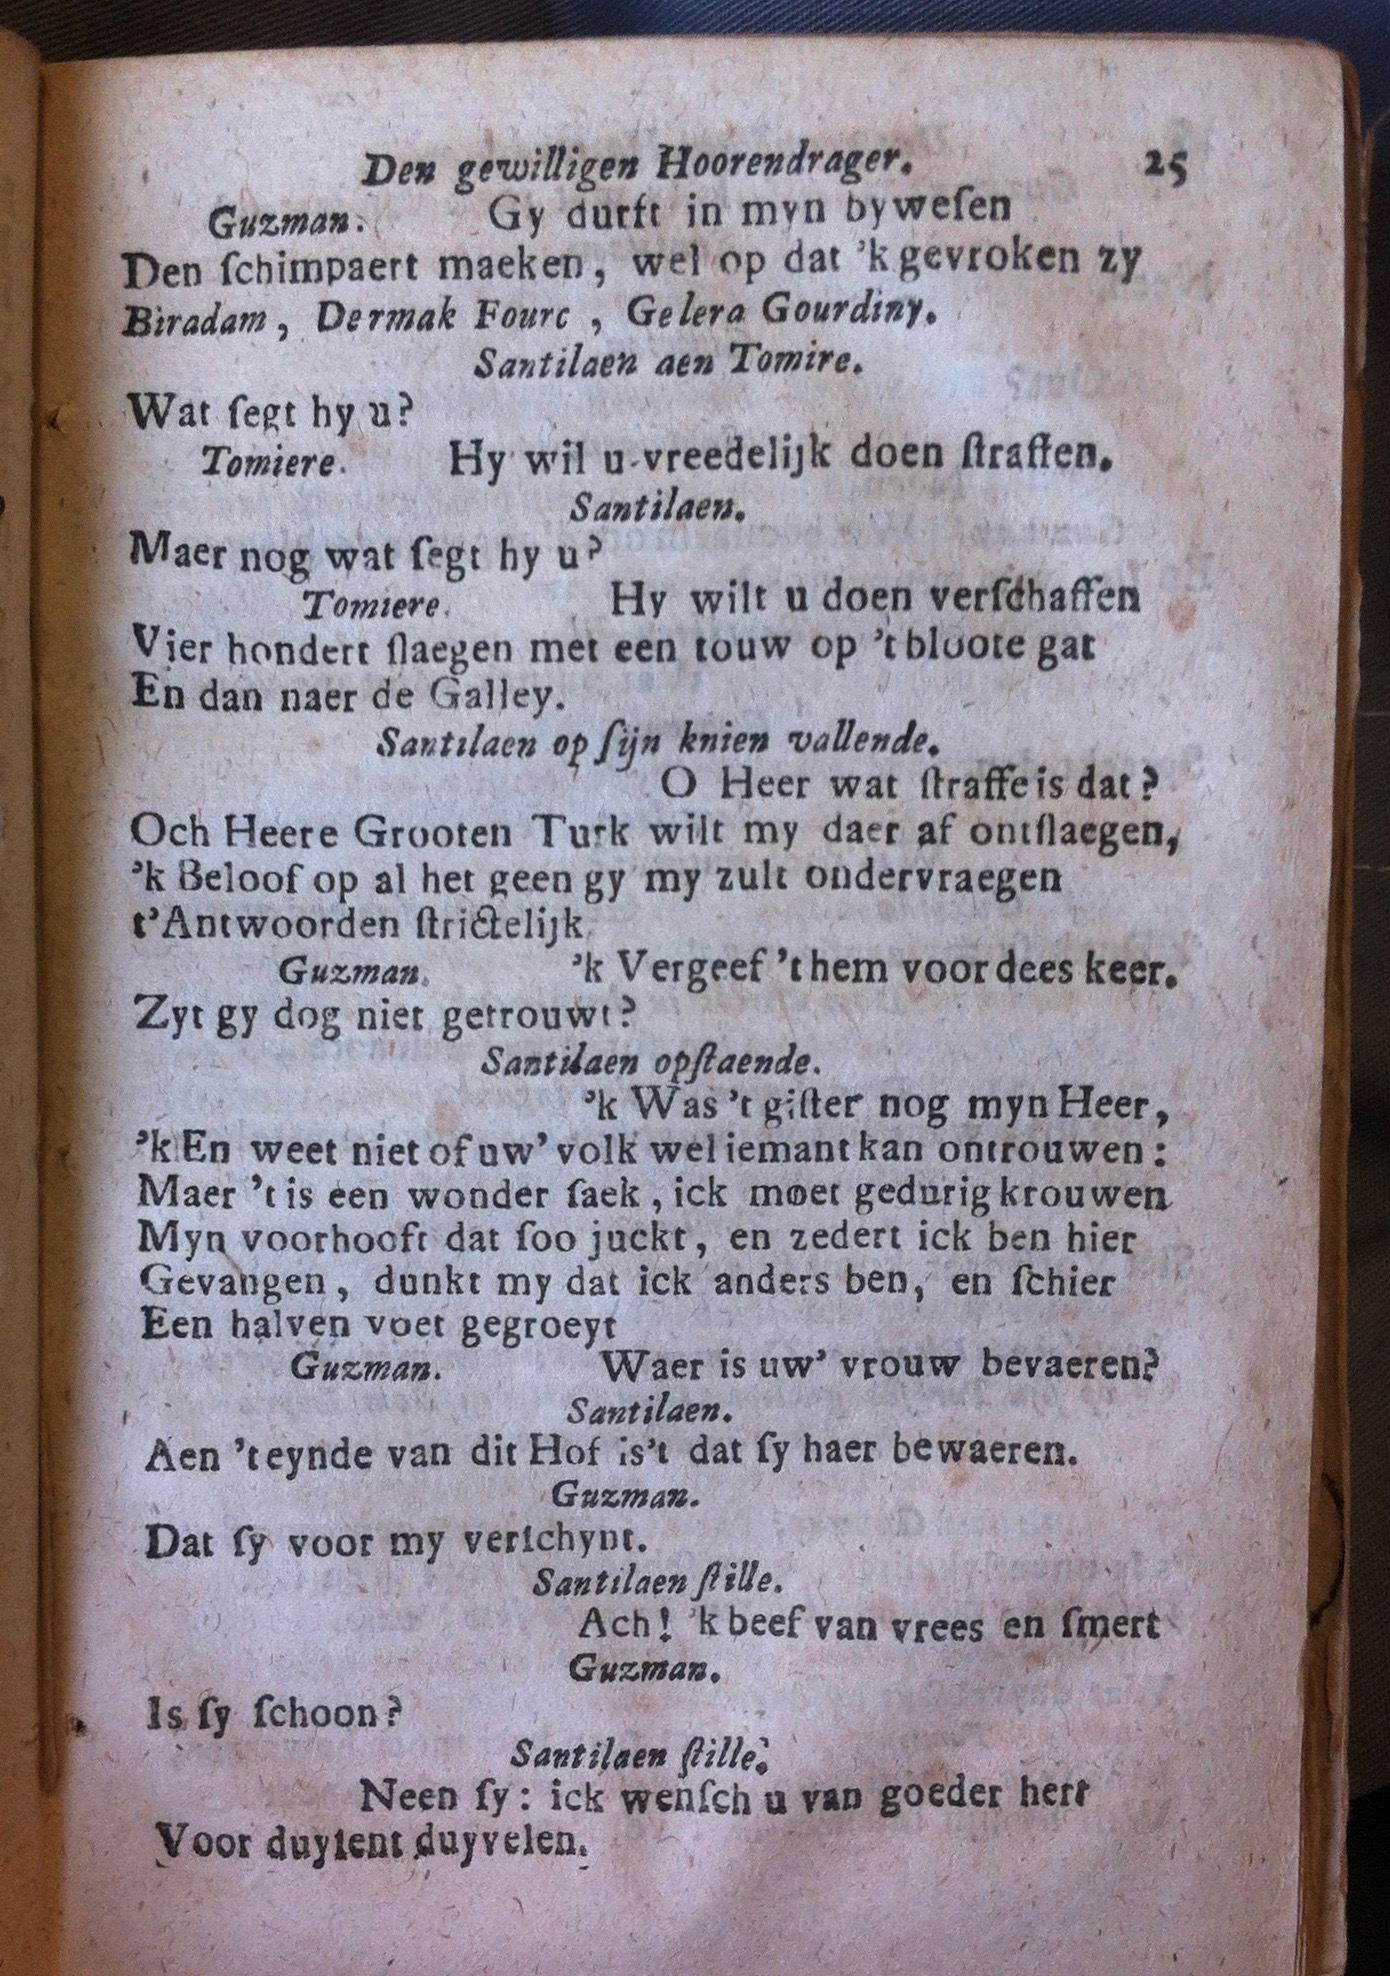 Den gewilligen Hoorendrager. 25
Guzman. Gy durft in myn byweſen
Den ſchimpaert maeken, wel op dat 'k gevroken zy
Biradam, Dermak Fourc, Gelera Gourdiny.
Santilaen aen Tomire.
Wat ſegt hy u?
Tomiere. Hy wil u vreedelijk doen ſtraffen.
Santilaen.
Maer nog wat ſegt hy u?
Tomiere. Hy wilt u doen verſchaffen
Vier hondert ſlaegen met een touw op 't bloote gat
En dan naer de Galley.
Santilaen op ſijn knien vallende.
O Heer wat ſtraffe is dat?
Och Heere Grooten Turk wilt my daer af ontſlaegen,
'k Beloof op al het geen gy my zult ondervraegen
t'Antwoorden ſtrictelijk
Guzman. 'k Vergeef 't hem voor dees keer.
Zyt gy dog niet getrouwt?
Santilaen opſtaende.
'k Was 't giſter nog myn Heer,
'k En weet niet of uw' volk wel iemant kan ontrouwen:
Maer 't is een wonder ſaek, ick moet gedurig krouwen
Myn voorhooft dat ſoo juckt, en zedert ick ben hier
Gevangen, dunkt my dat ick anders ben, en ſchier
Een halven voet gegroeyt
Guzman. Waer is uw' vrouw bevaeren?
Santilaen.
Aen 't eynde van dit Hof is't dat ſy haer bewaeren.
Guzman.
Dat ſy voor my verſchynt.
Santilaen ſtille.
Ach! 'k beef van vrees en ſmert
Guzman.
Is ſy ſchoon?
Santilaen ſtille.
Neen ſy: ick wenſch u van goeder hert
Voor duyſent duyvelen.